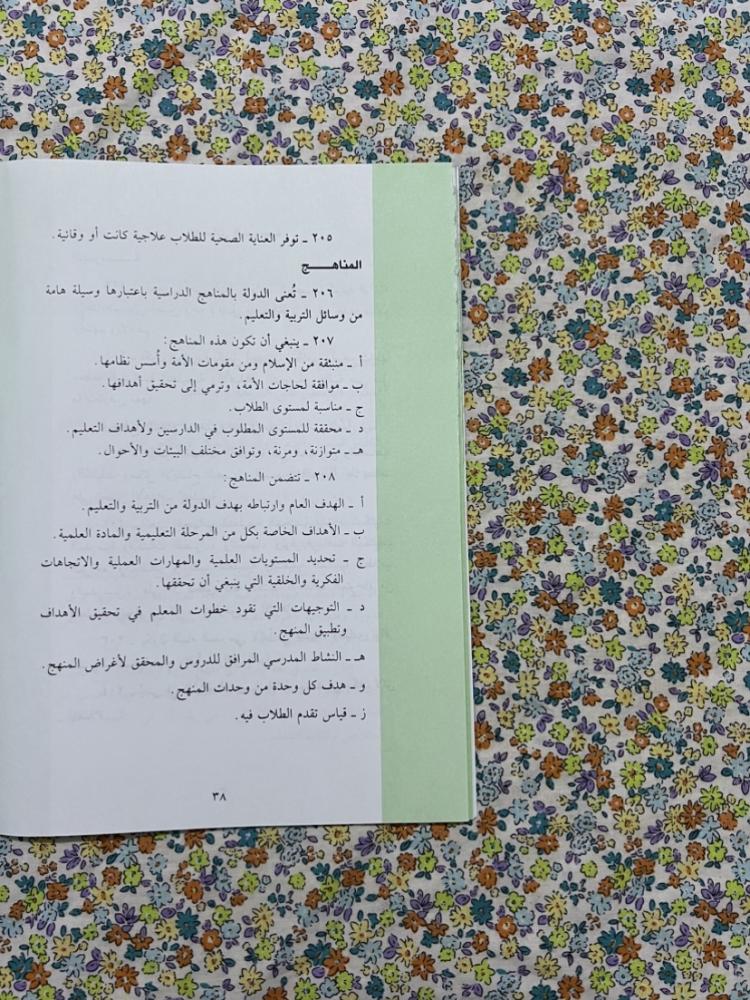 ٢٠٥ ـ توفر العناية الصحية للطلاب علاجية كانت أو وقائية.
المناهـــج
٢٠٦ ـ تُعنى الدولة بالمناهج الدراسية باعتبارها وسيلة هامة
من وسائل التربية والتعليم.
٢٠٧ ـ ينبغي أن تكون هذه المناهج:
أ ـ منبثقة من الإسلام ومن مقومات الأمة وأُسس نظامها.
ب ـ موافقة لحاجات الأمة، وترمي إلى تحقيق أهدافها.
ج ـ مناسبة لمستوى الطلاب.
د ـ محققة للمستوى المطلوب في الدارسين ولأهداف التعليم.
هـ ـ متوازنة، ومرنة، وتوافق مختلف البيئات والأحوال.
٢٠٨ ـ تتضمن المناهج:
أ ـ الهدف العام وارتباطه بهدف الدولة من التربية والتعليم.
ب ـ الأهداف الخاصة بكل من المرحلة التعليمية والمادة العلمية.
ج ـ تحديد المستويات العلمية والمهارات العملية والاتجاهات
الفكرية والخلقية التي ينبغي أن تحققها.
د ـ التوجيهات التي تقود خطوات المعلم في تحقيق الأهداف
وتطبيق المنهج.
هـ ـ النشاط المدرسي المرافق للدروس والمحقق لأغراض المنهج.
و ـ هدف كل وحدة من وحدات المنهج.
ز ـ قياس تقدم الطلاب فيه.
٣٨